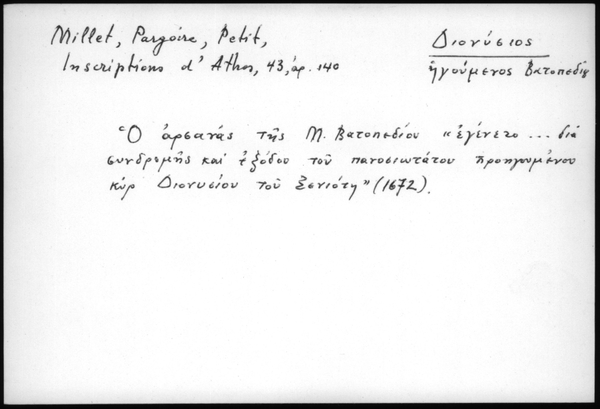 Millet, Pargoire, Petit,
Inscriptions d'Athos, 43, ἀρ. 140
Διονύσιος
ἡγούμενος Βατοπεδίου
Ὁ ἀρσανάς τῆς Μ. Βατοπεδίου «ἐγένετο ... διά
συνδρομῆς καί ἐξόδου τοῦ πανοσιωτάτου προηγουμένου
κύρ Διονυσίου τοῦ Ξενιότη» (1672).